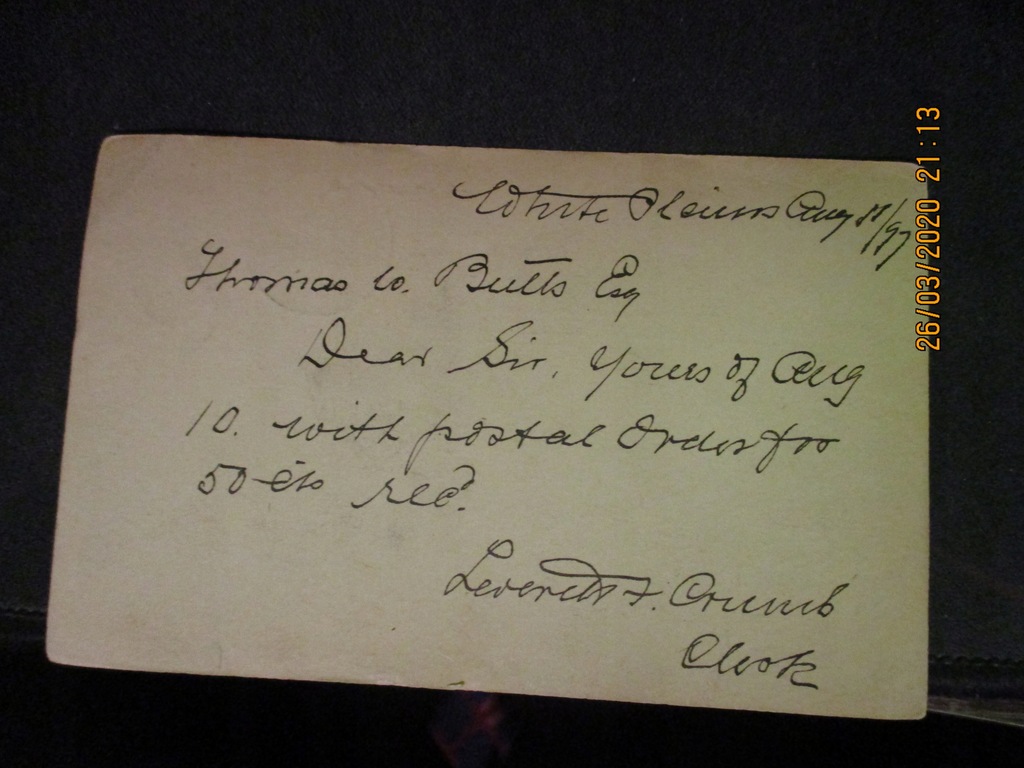 White Plains Aug 11/97
Thomas W. Butts Esq
Dear Sir, Yours of Aug
10. with postal order for
50 cts recd.
Leverett F. Crumb
Clerk
26/03/2020 21:13